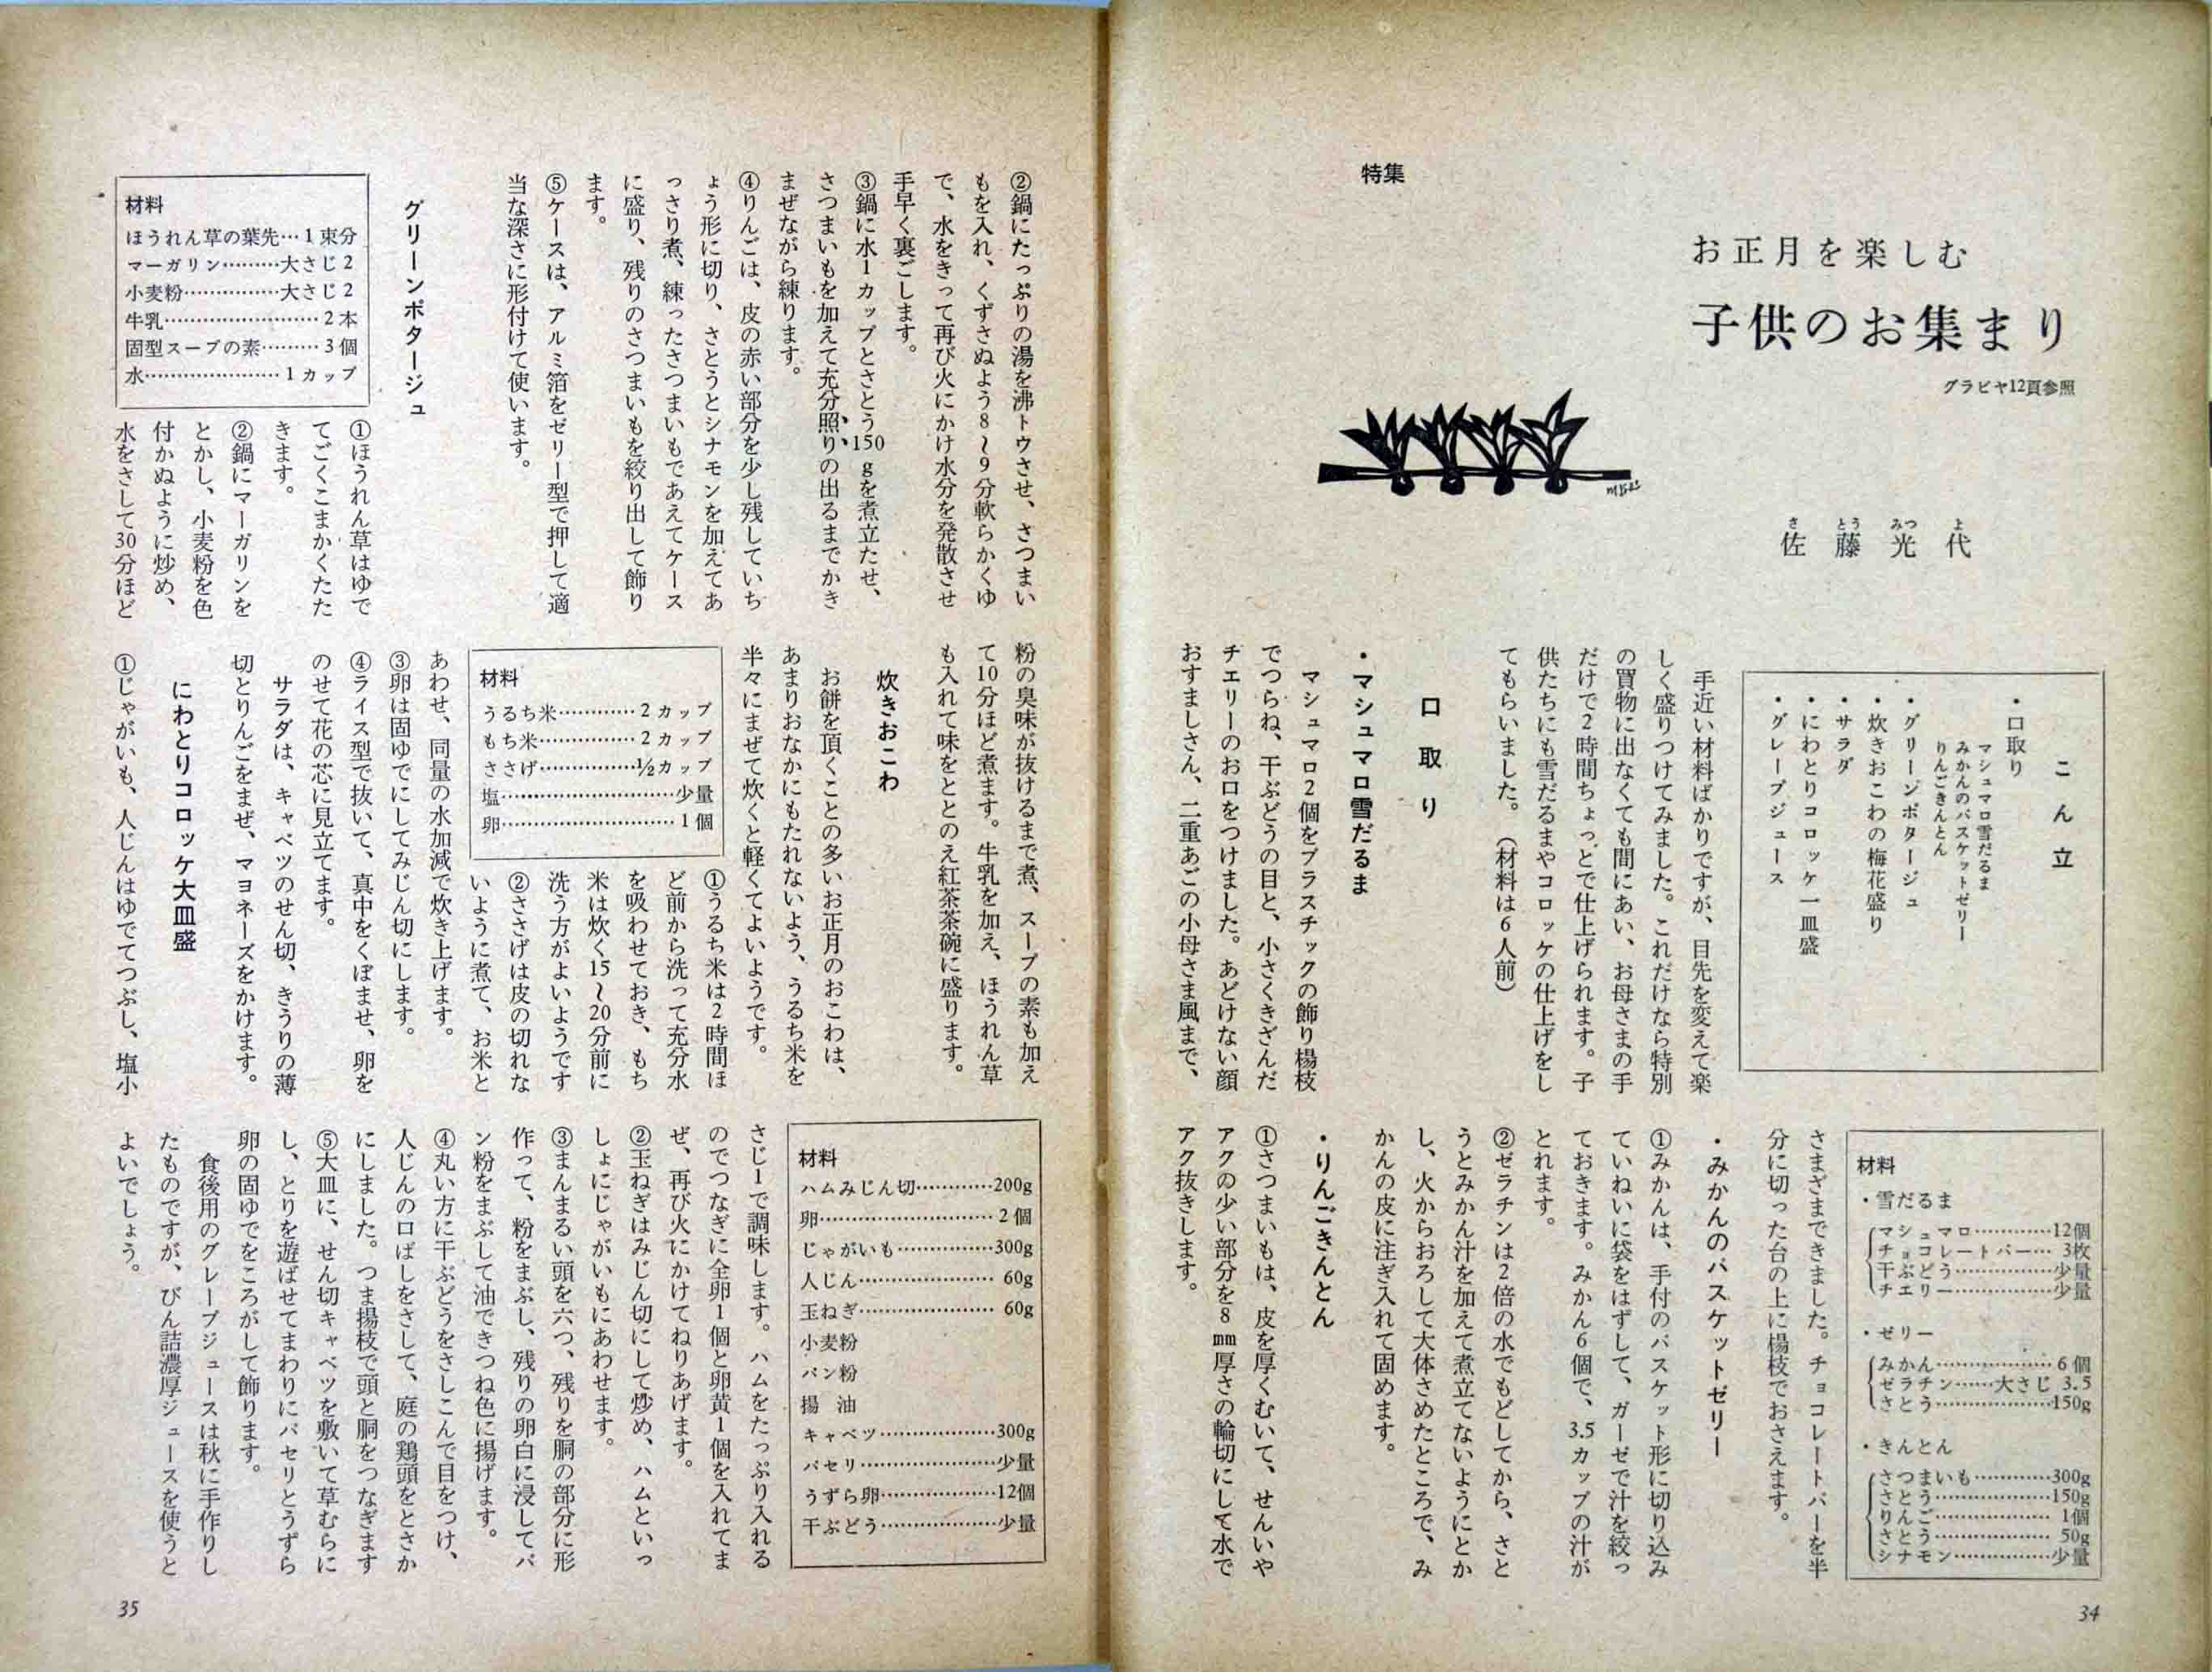 特集
お正月を楽しむ
子供のお集まり
グラビヤ12頁参照
さとうみつよ
佐藤光代
こん立
・口取り
マシュマロ雪だるま
みかんのバスケットゼリー
りんごきんとん
・グリーンポタージュ
・炊きおこわの梅花盛り
・サラダ
・にわとりコロッケ一皿盛
・グレープジュース
手近い材料ばかりですが、目先を変えて楽
しく盛りつけてみました。これだけなら特別
の買物に出なくても間にあい、お母さまの手
だけで2時間ちょっとで仕上げられます。子
供たちにも雪だるまやコロッケの仕上げをし
てもらいました。（材料は6人前）
口取り
・マシュマロ雪だるま
マシュマロ2個をプラスチックの飾り楊枝
でつらね、干ぶどうの目と、小さくきざんだ
チエリーのお口をつけました。あどけない顔
おすましさん、二重あごの小母さま風まで、
材料
・雪だるま
マシュマロ…………12個
チョコレートバー… 3枚
干ぶどう……………少量
チエリー……………少量
・ゼリー
みかん………………6個
ゼラチン……大さじ 3.5
さとう………………150g
・きんとん
さつまいも…………300g
さとう………………150g
りんご……………… 1個
さとう……………… 50g
シナモン……………少量
さまざまできました。チョコレートバーを半
分に切った台の上に楊枝でおさえます。
・みかんのバスケットゼリー
①みかんは、手付のバスケット形に切り込み
ていねいに袋をはずして、ガーゼで汁を絞っ
ておきます。みかん6個で、3.5カップの汁が
とれます。
②ゼラチンは2倍の水でもどしてから、さと
うとみかん汁を加えて煮立てないようにとか
し、火からおろして大体さめたところで、み
かんの皮に注ぎ入れて固めます。
・りんごきんとん
①さつまいもは、皮を厚くむいて、せんいや
アクの少い部分を8mm厚さの輪切にして水で
アク抜きします。
34
②鍋にたっぷりの湯を沸トウさせ、さつまい
もを入れ、くずさぬよう8〜9分軟らかくゆ
で、水をきって再び火にかけ水分を発散させ
手早く裏ごします。
③鍋に水1カップとさとう150gを煮立たせ、
さつまいもを加えて充分照りの出るまでかき
まぜながら練ります。
④りんごは、皮の赤い部分を少し残していち
ょう形に切り、さとうとシナモンを加えてあ
っさり煮、練ったさつまいもであえてケース
に盛り、残りのさつまいもを絞り出して飾り
ます。
⑤ケースは、アルミ箔をゼリー型で押して適
当な深さに形付けて使います。
グリーンポタージュ
材料
ほうれん草の葉先…1束分
マーガリン………大さじ2
小麦粉……………大さじ2
牛乳……………………2本
固型スープの素………3個
水…………………1カップ
①ほうれん草はゆで
てごくこまかくたた
きます。
②鍋にマーガリンを
とかし、小麦粉を色
付かぬように炒め、
水をさして30分ほど
粉の臭味が抜けるまで煮、スープの素も加え
て10分ほど煮ます。牛乳を加え、ほうれん草
も入れて味をととのえ紅茶茶碗に盛ります。
炊きおこわ
お餅を頂くことの多いお正月のおこわは、
あまりおなかにもたれないよう、うるち米を
半々にまぜて炊くと軽くてよいようです。
材料
うるち米…………2カップ
もち米……………2カップ
ささげ……………½カップ
塩………………………少量
卵………………………1個
①うるち米は2時間ほ
ど前から洗って充分水
を吸わせておき、もち
米は炊く15〜20分前に
洗う方がよいようです
②ささげは皮の切れな
いように煮て、お米と
あわせ、同量の水加減で炊き上げます。
③卵は固ゆでにしてみじん切にします。
④ライス型で抜いて、真中をくぼませ、卵を
のせて花の芯に見立てます。
サラダは、キャベツのせん切、きうりの薄
切とりんごをまぜ、マヨネーズをかけます。
にわとりコロッケ大皿盛
①じゃがいも、人じんはゆでてつぶし、塩小
材料
ハムみじん切…………200g
卵………………………2個
じゃがいも……………300g
人じん………………… 60g
玉ねぎ………………… 60g
小麦粉
パン粉
揚　油
キャベツ………………300g
パセリ…………………少量
うずら卵………………12個
干ぶどう………………少量
さじ1で調味します。ハムをたっぷり入れる
のでつなぎに全卵1個と卵黄1個を入れてま
ぜ、再び火にかけてねりあげます。
②玉ねぎはみじん切にして炒め、ハムといっ
しょにじゃがいもにあわせます。
③まんまるい頭を六つ、残りを胴の部分に形
作って、粉をまぶし、残りの卵白に浸してパ
ン粉をまぶして油できつね色に揚げます。
④丸い方に干ぶどうをさしこんで目をつけ、
人じんの口ばしをさして、庭の鶏頭をとさか
にしました。つま揚枝で頭と胴をつなぎます
⑤大皿に、せん切キャベツを敷いて草むらに
し、とりを遊ばせてまわりにパセリとうずら
卵の固ゆでをころがして飾ります。
食後用のグレープジュースは秋に手作りし
たものですが、びん詰濃厚ジュースを使うと
よいでしょう。
35